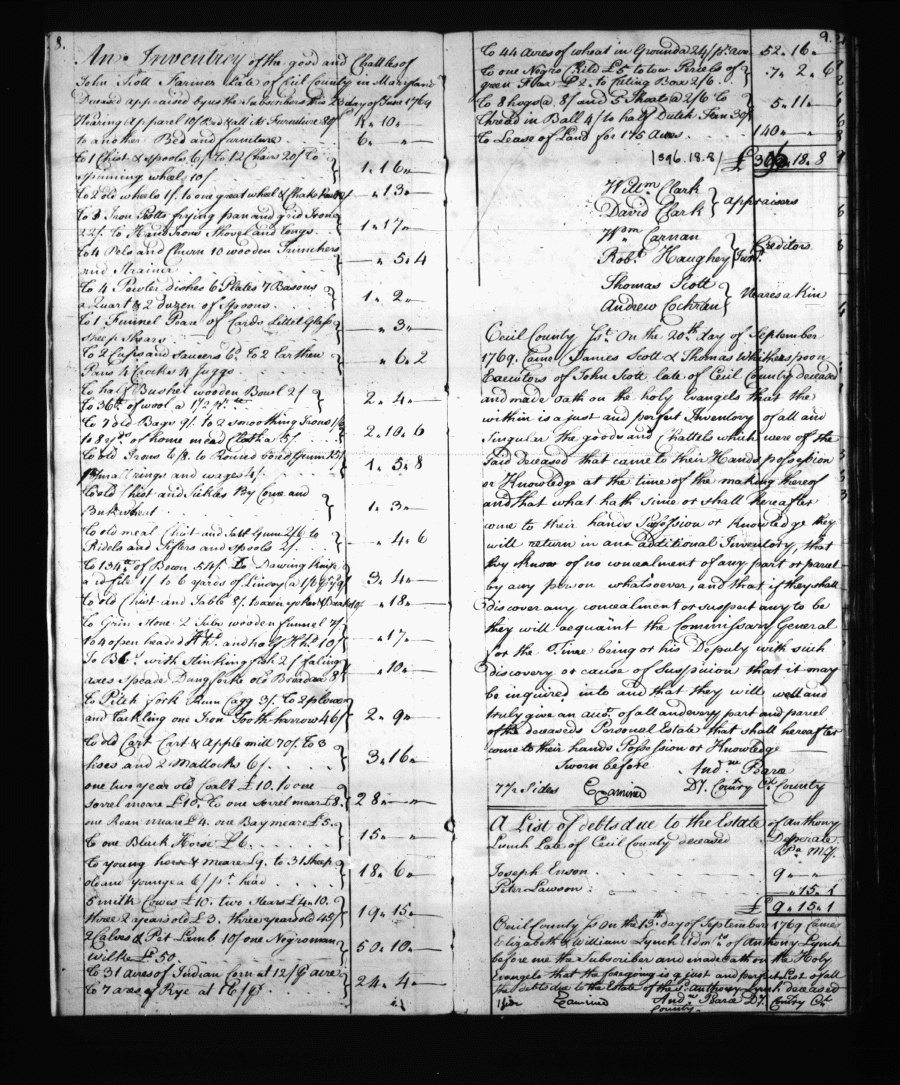 8.
An Inventory of the good and Chattles of
John Scott Farmer Late of Cecil County in Maryland
Deceased appraised by us the Subscribers this 23 day of June 1764
Wearing Apparl 10/ Bed & all its Furniture 80/ 10 „
to another Bed and furniture 6 „ „
to 1 Chist & spools 6/ To 12 Chairs 20/ To
Spinning wheels 10/ 1 „ 16 „
to 2 old wheels 1/. to one great wheel & „ 13 „
to 3 Iron Potts frying pan and grid Irons
22/. to Hand Irons Shovel and tongs 1 „ 17 „
to 4 Pels and Churn 10 wooden Trunchers
and Strainer „ 5 „ 4
To 4 Pewter dishes 6 Plates 7 Basons
a Quart & 2 duzen of Spoons 1 „ 2 „
to 1 Funnel Pear of Cards Littel Glass
Sheep Shears „ 3 „
to 2 Cups and Saucers 6d. to 2 Earthen
Pans 4 Crocks 4 Juggs „ 6 „ 2
to half Bushel wooden Bowl 2/
to 36 lb. of wool a 1/2 pr. 2 „ 4 „
to 7 old Bags 9/. to 2 smoothing Irons 1/6
to 8 yds. of home mead Cloth a 5/ 2 „ 10 „ 6
to old Irons 6/8. to 15/
small rings and wages 4/. 1 „ 5 „ 8
to old Chist and Sickles By Corn and
Buckwheat 1 „ 3 „
to old meal Chist and Salt Gunn 2/6 to
Ridels and Sifters and Spools 2/ „ 4 „ 6
to 134 lb. of Becon 54/. To Dawing Knife
and file 1/ to 6 yards of Lindsey a 3 „ 4 „
to old Chist and Table 8/. to „ 18 „
to Grin Stone 2 Tubs wooden funnel 7/
to 4 open headed Hhds. and half Hhd. 10/ „ 17 „
To Bbl. with Stinking fish 2/ faling
axes Speade Dung forks old Broad ax 8/ „ 10 „
to Pitch fork Rum Cagg 3/. To 2 plows
and tackling one Iron Tooth harrow 46/ 2 „ 9 „
to old Cart Cart & Apple mill 70/. to 3
hoes and 2 Mattocks 6/. 3 „ 16 „
one two year old Coalt £10. to one
Sorrel meare £10. to one Sorrel mear £8. 28 „ „
one Roan meare £4. one Bay meare £5.
to one Black Horse £6. 15 „ „
to young horse & meare £9. to 31 Sheep
old and young a 6/ pr. head 18 „ 6 „
5 milk Cowes £10. two Stears £4.10.
three 2 years old £3. three years old 45/ 19 „ 15 „
2 Calves & Pet Lamb 10/ one Negroman
Will £50 50 „ 10 „
to 31 acres of Indian Corn at 12/ pr. acre
to 7 acres of Rye at 16/ pr. 24 „ 4 „
9.
to 44 Acres of wheat in Ground a 24/ pr. acre 52 „ 16 „
to one Negro Child £5 to tow Persels of
green Flax £2. to Box 2/6 „ 7 „ 2 „ 6
to 8 hogs @ 8/ and 5 Shoats @ 2/6 To
thread in Ball 4/ to half Dutch Fan 30/ 5 „ 11 „
to Lease of Land for 175 Acres 140 „ „
| 396.18.8 | £ 396 „ 18 „ 8
Willm. Clark
David Clark } Appraisers
Wm. Carnan
Robt. Haughey Junr. } Creditors
Thomas Scott
Andrew Cochran } Neares a kin
Cecil County Ss. On the 20th day of September
1769. Came James Scott & Thomas Whitherspoon
Executors of John Scott late of Cecil County deceased
and made oath on the holy Evangels that the
within is a just and perfect Inventory of all and
Singular the goods and Chattels which were of the
said deceased that came to their Hands possession
or Knowledge at the time of the making thereof
and that what hath since or shall hereafter
come to their hands Possession or Knowledge they
will return in an additional Inventory, that
they know of no concealment of any part or parcel
by any person whatsoever, and that if they shall
discover any concealment or suspect any to be
they will acquaint the Commissary General
for the Time being or his Deputy with such
discovery or cause of Suspicion that it may
be inquired into and that they will well and
truly give an acct. of all and every part and parcel
of the deceaseds Personal Estate that shall hereafter
come to their hands Possession or Knowledge
Sworn before Andw. Barr
7 1/2 Sides Examined Dy. Comry Cl. County
A List of debts due to the Estate of Anthony
Lynch Late of Cecil County deceased Desperate
Joseph Enson 9 „ „
Peter Lawson „ 15 „ 1
£ 9 „ 15 „ 1
Cecil County Ss On the 13th. day of September 1769 Came
Elizabeth & William Lynch Admrs. of Anthony Lynch
before me the Subscriber and made oath on the Holy
Evangels that the foregoing is a just and perfect List of all
the debts due to the Estate of the sd. Anthony Lynch deceased
1 side Examined Andw. Barr Dy. Comry Cl.
County